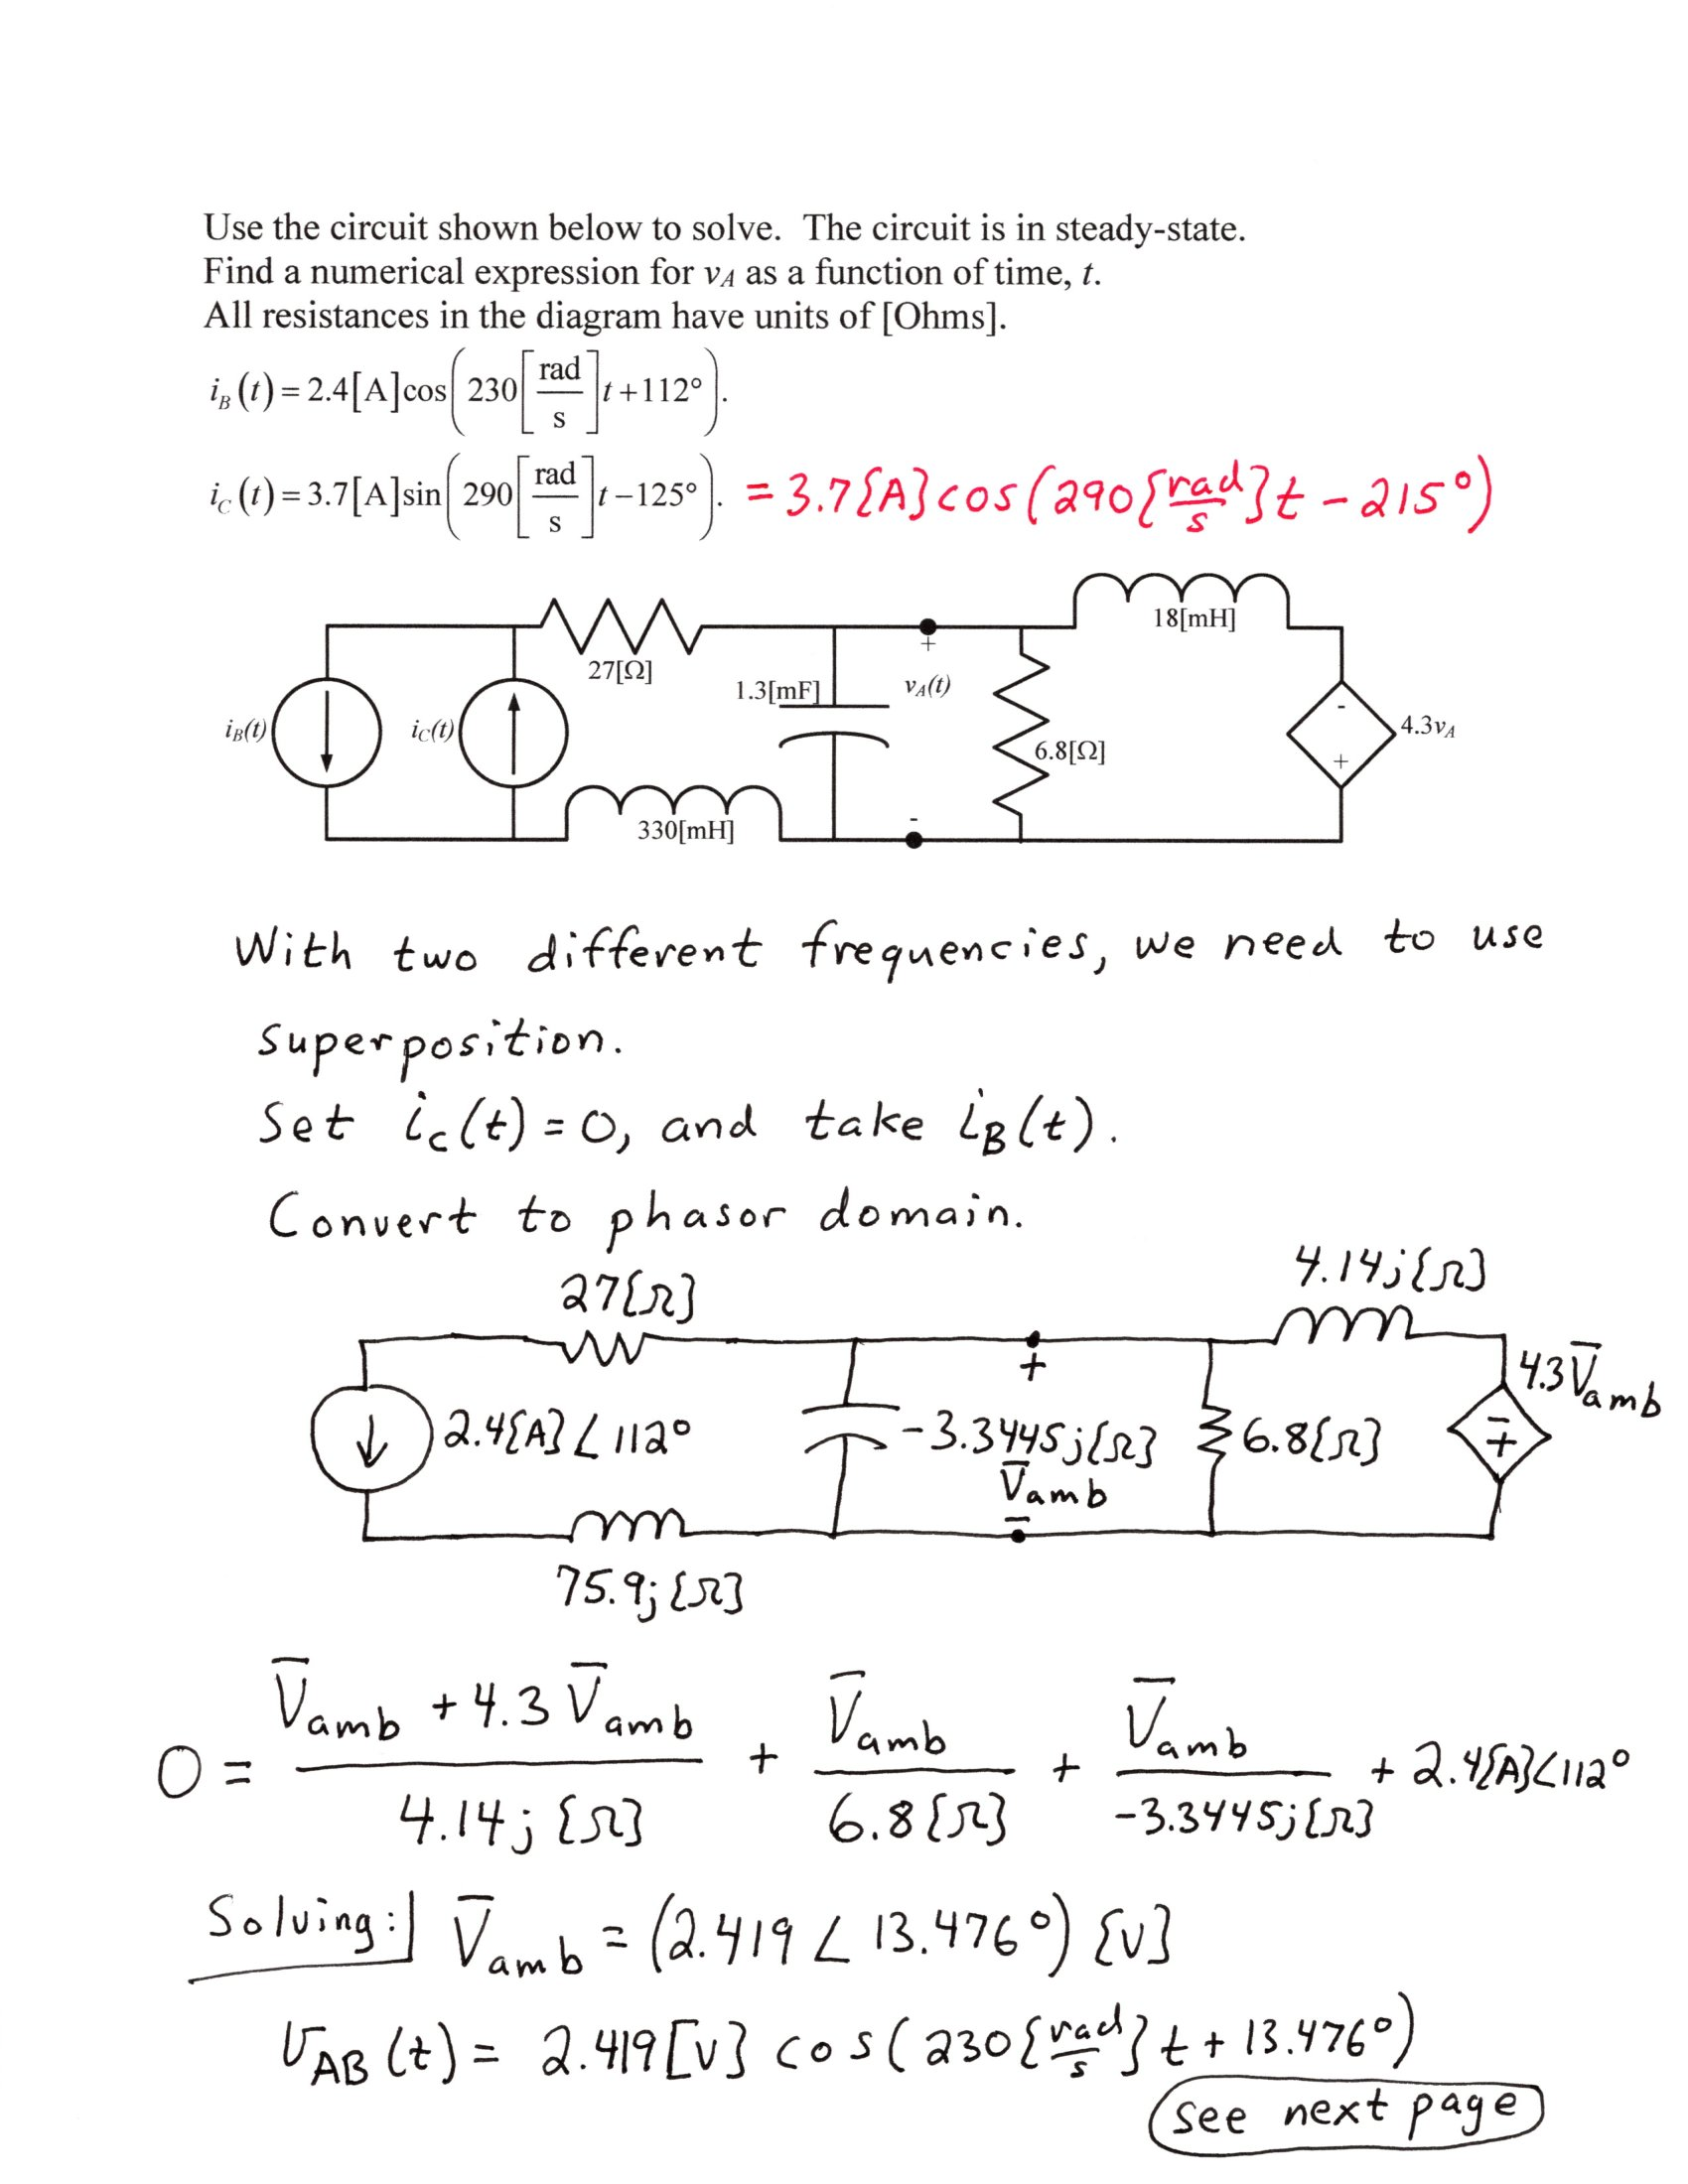 Use the circuit shown below to solve. The circuit is in steady-state.
Find a numerical expression for vA as a function of time, t.
All resistances in the diagram have units of [Ohms].
iB(t) = 2.4[A]cos(230[rad/s]t+112°).
iC(t) = 3.7[A]sin(290[rad/s]t−125°). = 3.7[A]cos(290[rad/s]t − 215°)
18[mH]
27[Ω]
1.3[mF]
+
vA(t)
-
iB(t)
iC(t)
6.8[Ω]
-
4.3vA
+
330[mH]
-
With two different frequencies, we need to use
superposition.
Set ic(t) = 0, and take iB(t).
Convert to phasor domain.
4.14j[Ω]
27[Ω]
+
4.3V̅amb
2.4[A]∠112°
-3.3445j[Ω]
6.8[Ω]
-
+
V̅amb
-
75.9j[Ω]
0 = (V̅amb + 4.3V̅amb)/(4.14j[Ω]) + V̅amb/(6.8[Ω]) + V̅amb/(-3.3445j[Ω]) + 2.4[A]∠112°
Solving: V̅amb = (2.419 ∠ 13.476°) [V]
vAB(t) = 2.419[V] cos(230[rad/s]t + 13.476°)
see next page